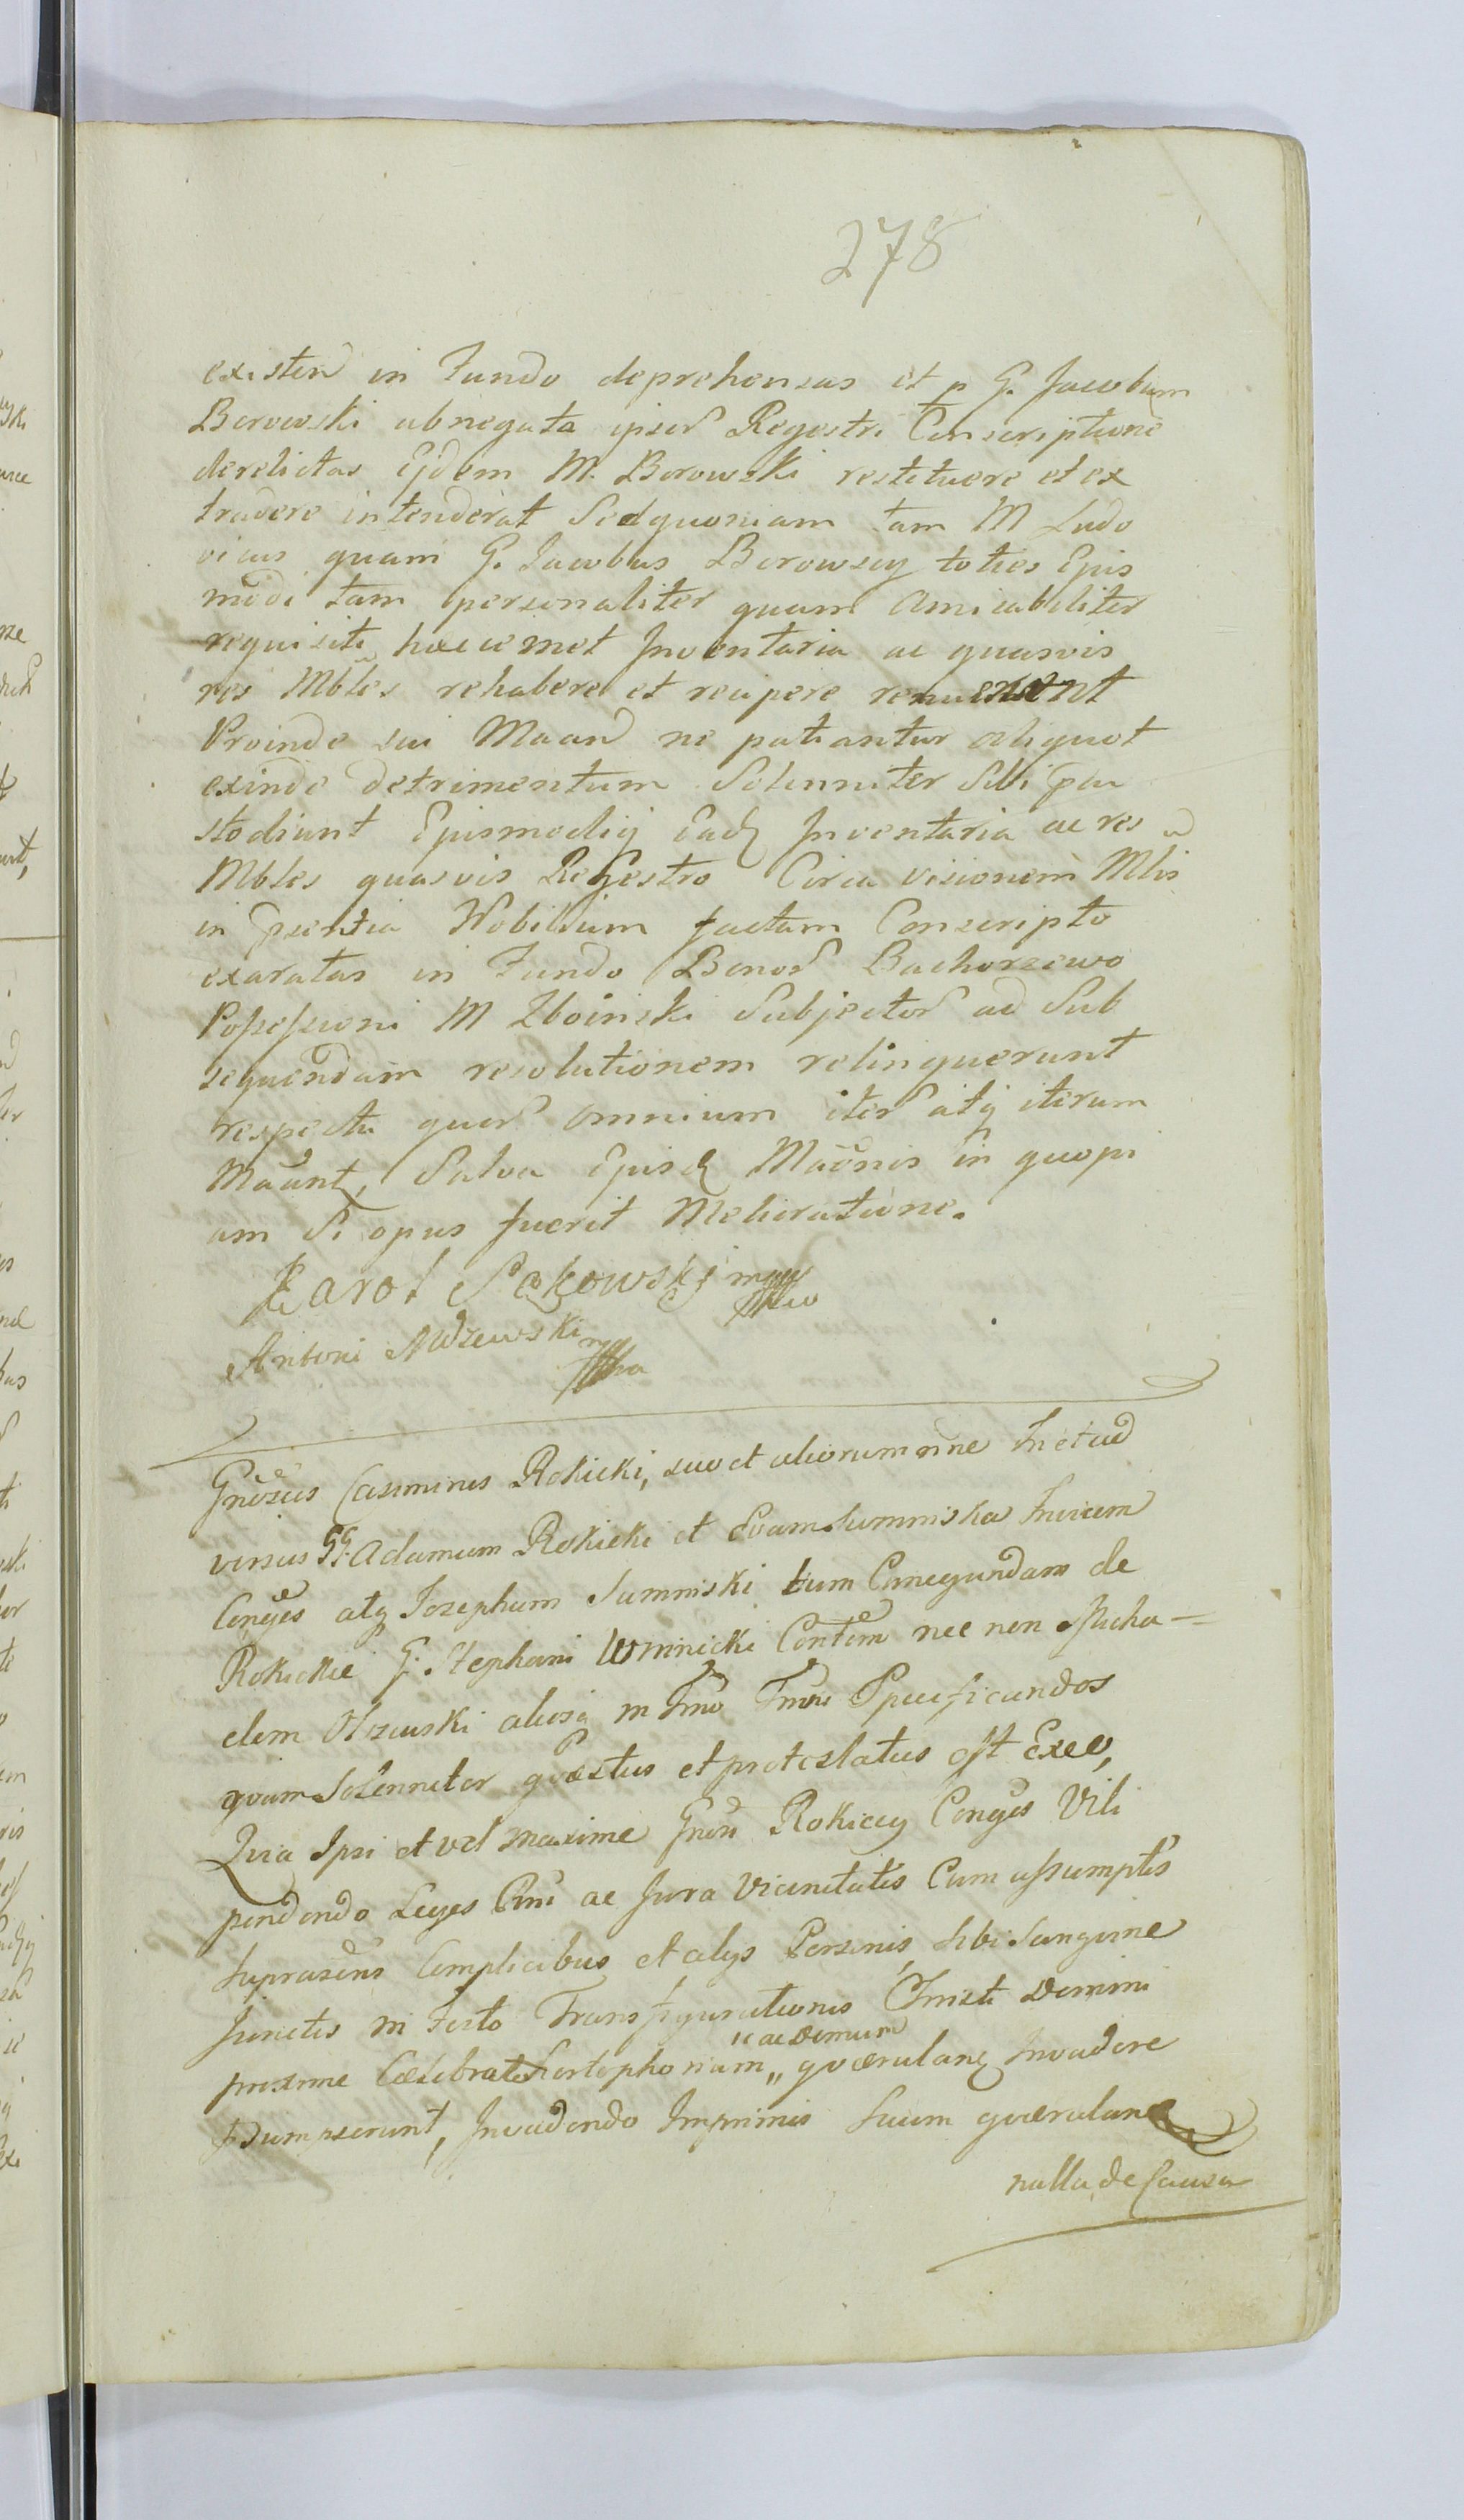 278
existen in Fundo deprehensas et p G. Jacobum
Borowski abnegata ipsor Regestri Conscriptione
derelictas Ejdem M. Borowski restituere et ex
tradere intenderat Sedquoniam tam M Ludo
vicus quam G. Jacobus Borowscy toties Epis
modi tam personaliter quam Amicabiliter
requisiti hascemet Inventaria ac quasvis
res Mbles rehabere et recipere renuerunt
Proinde sui Maand ne patiantur aliquot
exinde detrimentum Solenniter Sibi
stodiunt Epismodij Eadq Inventaria ac res
Mbles quasvis Regestro Circa visionem Mlis
in psentia Nobilium factam Conscripto
exaratas in Fundo Bonor Bachorzewo
Possessioni M Zboinski Subjector ad Sub
sequendam resolutionem relinquerunt
respectu quor omnium iter atq iterum
Maant, Salva Episd Maonis in quopi
am Si opus fuerit Melioratione.
Karol Sakowski mpp
Antoni mppa
Gnosus Casimirus Rokicki, suo et aliorum nne In et ad
versus GG. Adamum Rokicki et Evam Sumniska Invicem
Conges atq Josephum Sumniski tum Cunegundam de
Rokickie G. Stephani Womnicki Contem nec non Micha=
elem Olszewski aliosq in Tmo Tmoru Specificandos
quam Solenniter quaestus et protestatus est Exeo,
Quia Ipsi et vel maxime Gnosi Rokiccy Conges Vili
pendendo Leges Cmi ac Jura Vicinitatis Cum assumptis
Suprascris Complicibus et alys Personis, Sibi Sanguine
Junctis in Festo Transfigurationis Christi Domini
proxime Caelebrate Sortophoriam „ quaerulanq Invadere
"ac Domum
psumpserunt, Invadendo Imprimis Suum quaerulanq
nulla de Causa